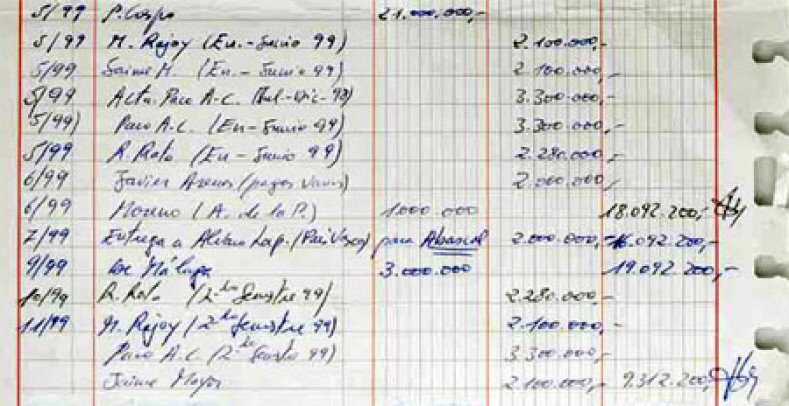 5/99 P. Crespo 21.000.000,-
5/99 M. Rajoy (En.-Junio 99) 2.100.000,-
5/99 Jaime M. (En.-Junio 99) 2.100.000,-
5/99 Acta. Paco A.C. (Jul-Dic-98) 3.300.000,-
(5/99) Paco A.C. (En-Junio-99) 3.300.000,-
5/99 R. Rato (En-Junio 99) 2.280.000,-
6/99 Javier Arenas (pagos varios) 2.000.000,-
6/99 Moreno (A. de la P.) 1.000.000 18.092.200,-
7/99 Entrega a Alvaro Lap. (Pais Vasco) para Abascal 2.000.000,- 16.092.200,-
9/99 de Málaga 3.000.000 19.092.200,-
10/99 R. Rato (2º Semestre 99) 2.280.000,-
11/99 M. Rajoy (2º Semestre 99) 2.100.000,-
Paco A.C. (2º Semestre 99) 3.300.000,-
Jaime Mayor 2.100.000,- 9.312.200,-